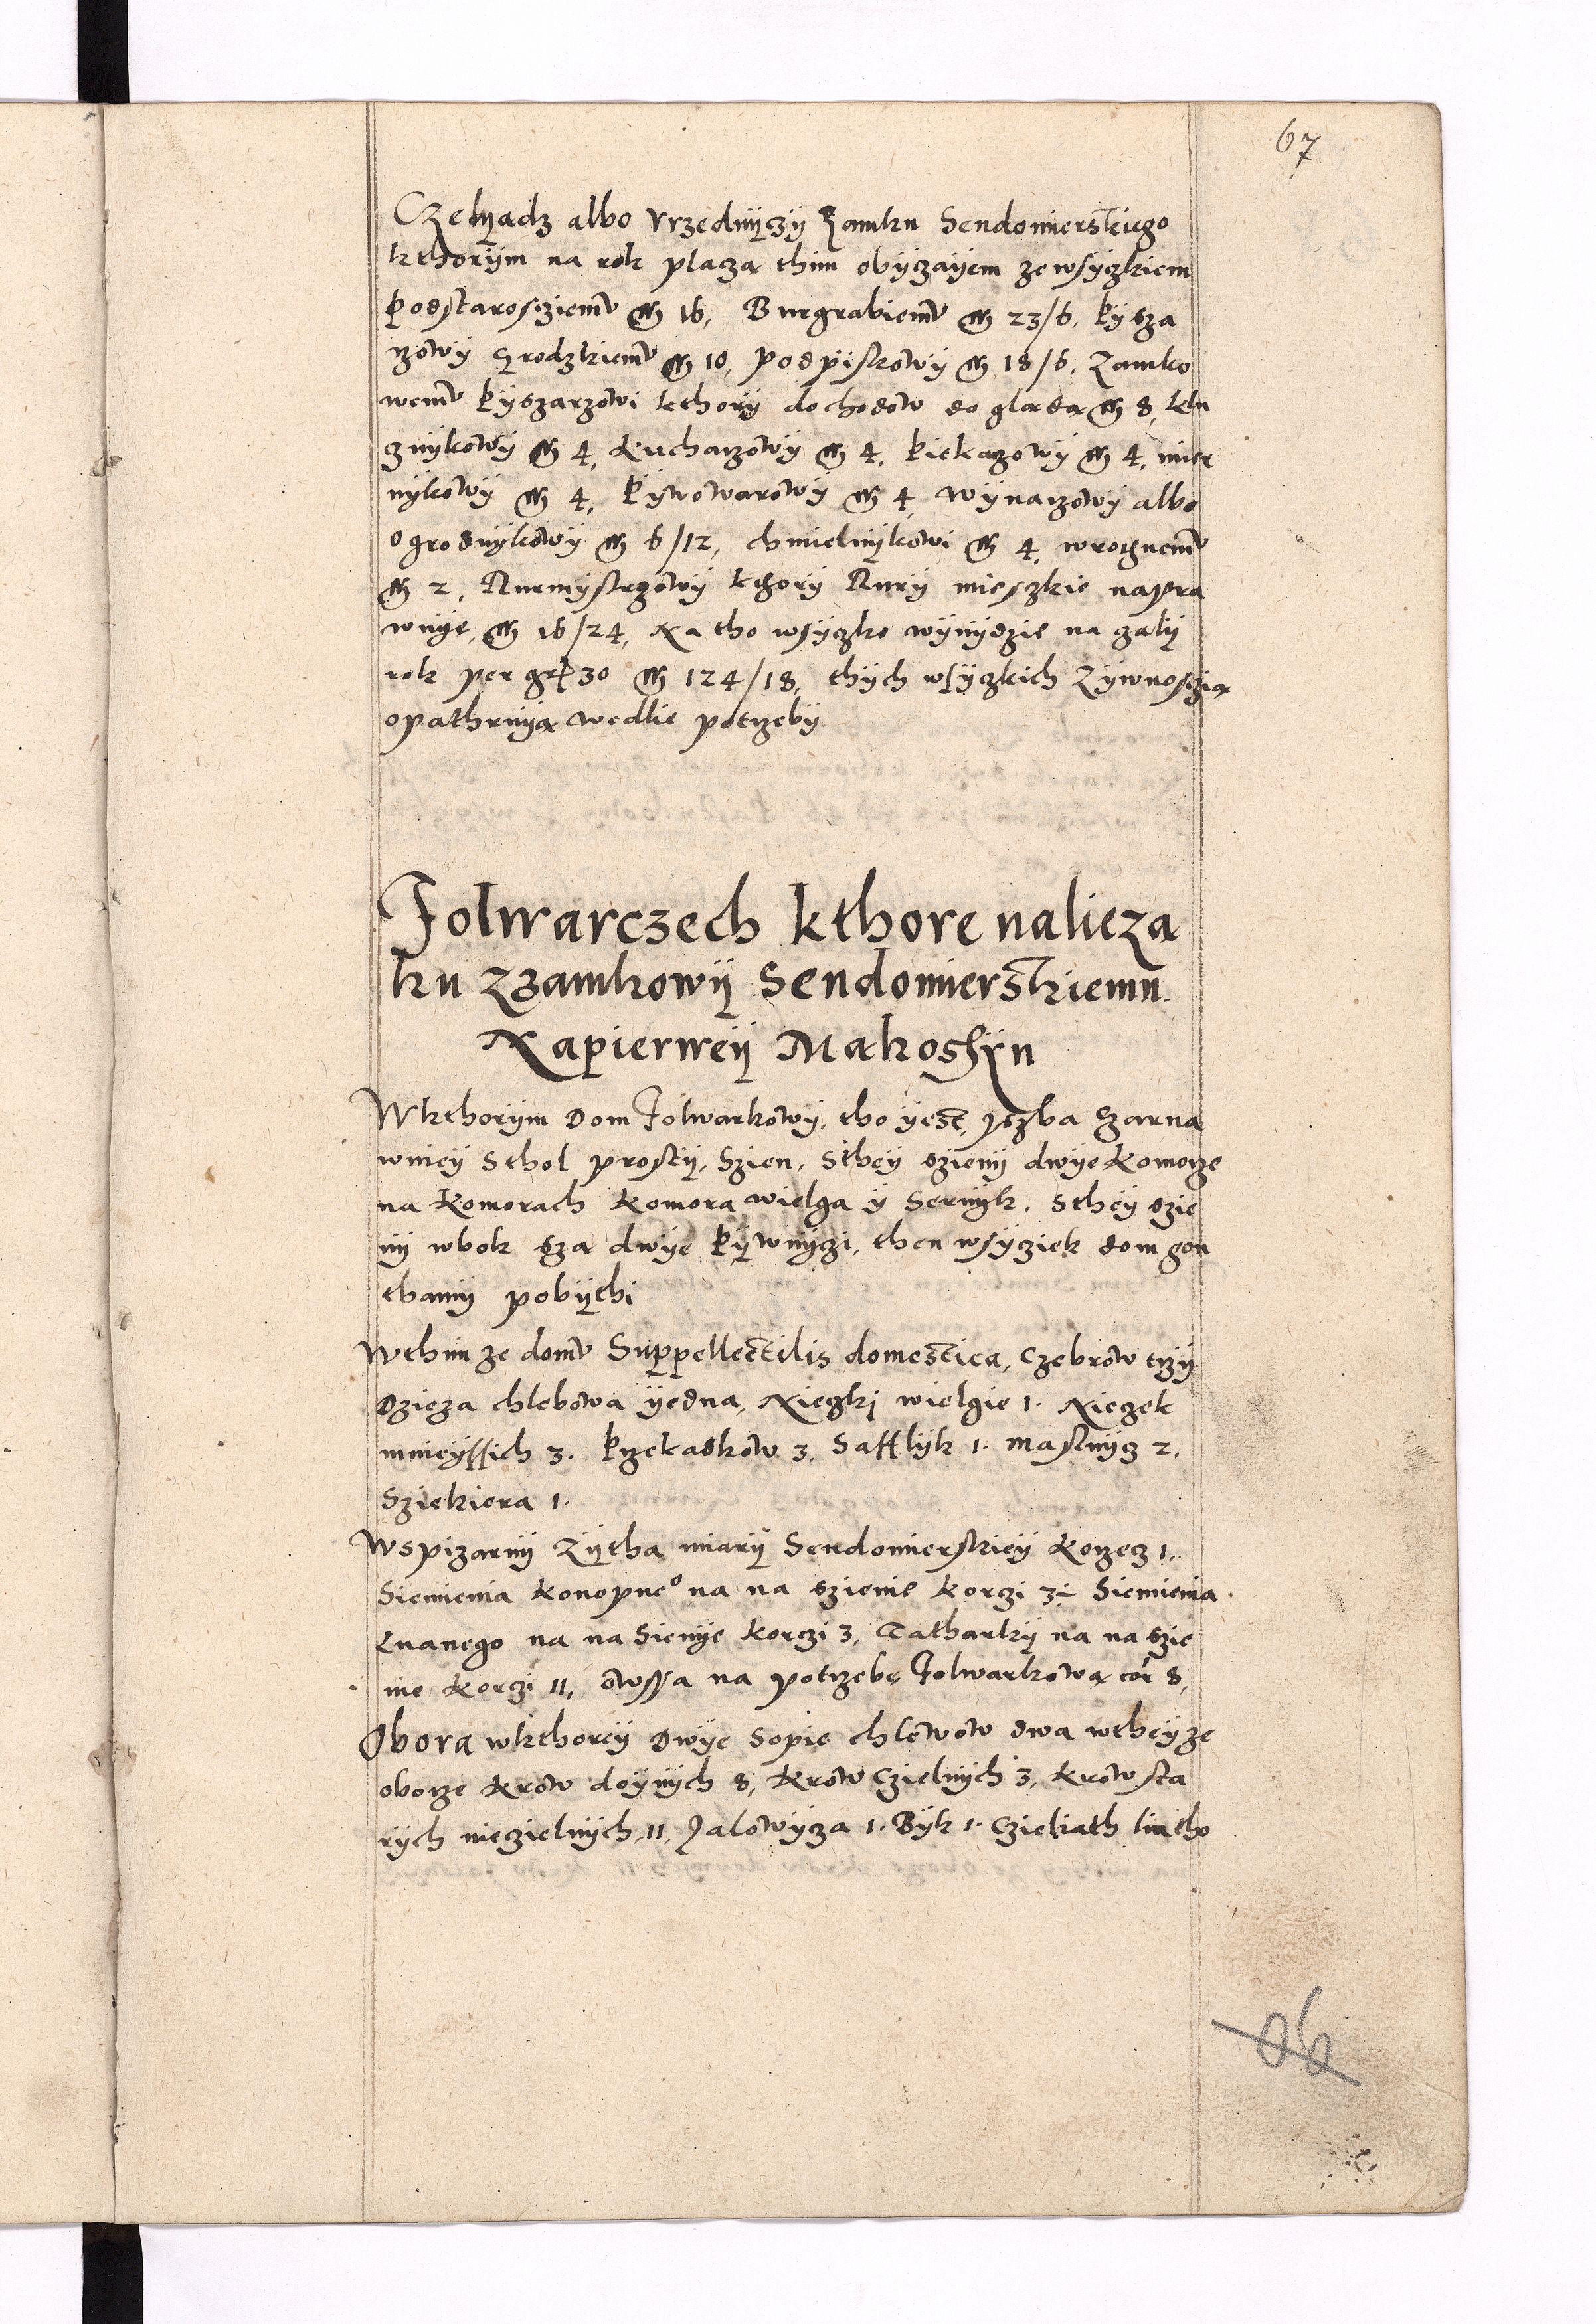 67
Czelyadz albo Vrzednyczy Zamku Sendomierskiego
kthorym na rok placza thim obyczayem ze wsyczkiem
Podstaroscziemu m 16, Burgrabiemu m 23/6, Pysza
rzowy Grodzkiemu m 10, podpiskowy m 18/6, Zamko
wemu Pyszarzowi kthory dochodow doglada m 8, klu
cznykowy m 4, Kucharzowy m 4, Piekarzowy m 4, mier
nykowy m 4, Pywowarowy m 4, Wynarzowy albo
ogrodnykowy m 6/12, chmielnykowi m 4, wrothnemu
m 2, Rurmystrzowy kthory Rury mieszkie napra
wuye, m 16/24, Na tho wsyczko wynydzie na czaly
rok per gr 30 m 124/18, thych wsyczkich Zywnosczia
opathruya wedlie potrzeby
Folwarczech kthore nalieza
ku Zzamkowy Sendomierskiemu
Napierwey Makoszyn
Wkthorym Dom Folwarkowy, tho yest, yszba Czarna
wniey Sthol prosty, Szien, Sthey szieny dwye Komorze
na Komorach Komora wielga y Sernyk, Sthey szie
ny wbok sza dwye Pywnyczi, then wsyczek dom gon
thamy pobythi
Wthim ze domu Suppellectilis domestica, Czebrow trzy
Dzieza chlebowa yedna, Nieczki wielgie 1. Nieczek
mnieyssich 3. Przekadkow 3, Safflyk 1. Mastnycz 2.
Sziekiera 1.
Wspizarny Zytha miary Sendomierskiey Korzecz 1.
Siemienia Konopneo na na szienie Korczi 3÷ Siemienia
Lnanego na na Sienye Korczi 3, Tatharky na na szie
nie Korczi 11, owssa na potrzebe Folwarkowa cor 8,
Obora wkthorey Dwye Sopie chlewow dwa wtheyze
oborze Krow doynych 8, Krow Czielnych 3, Krow sta
rych nieczielnych 11, Jalowycza 1. Byk 1. Czieliath liatho